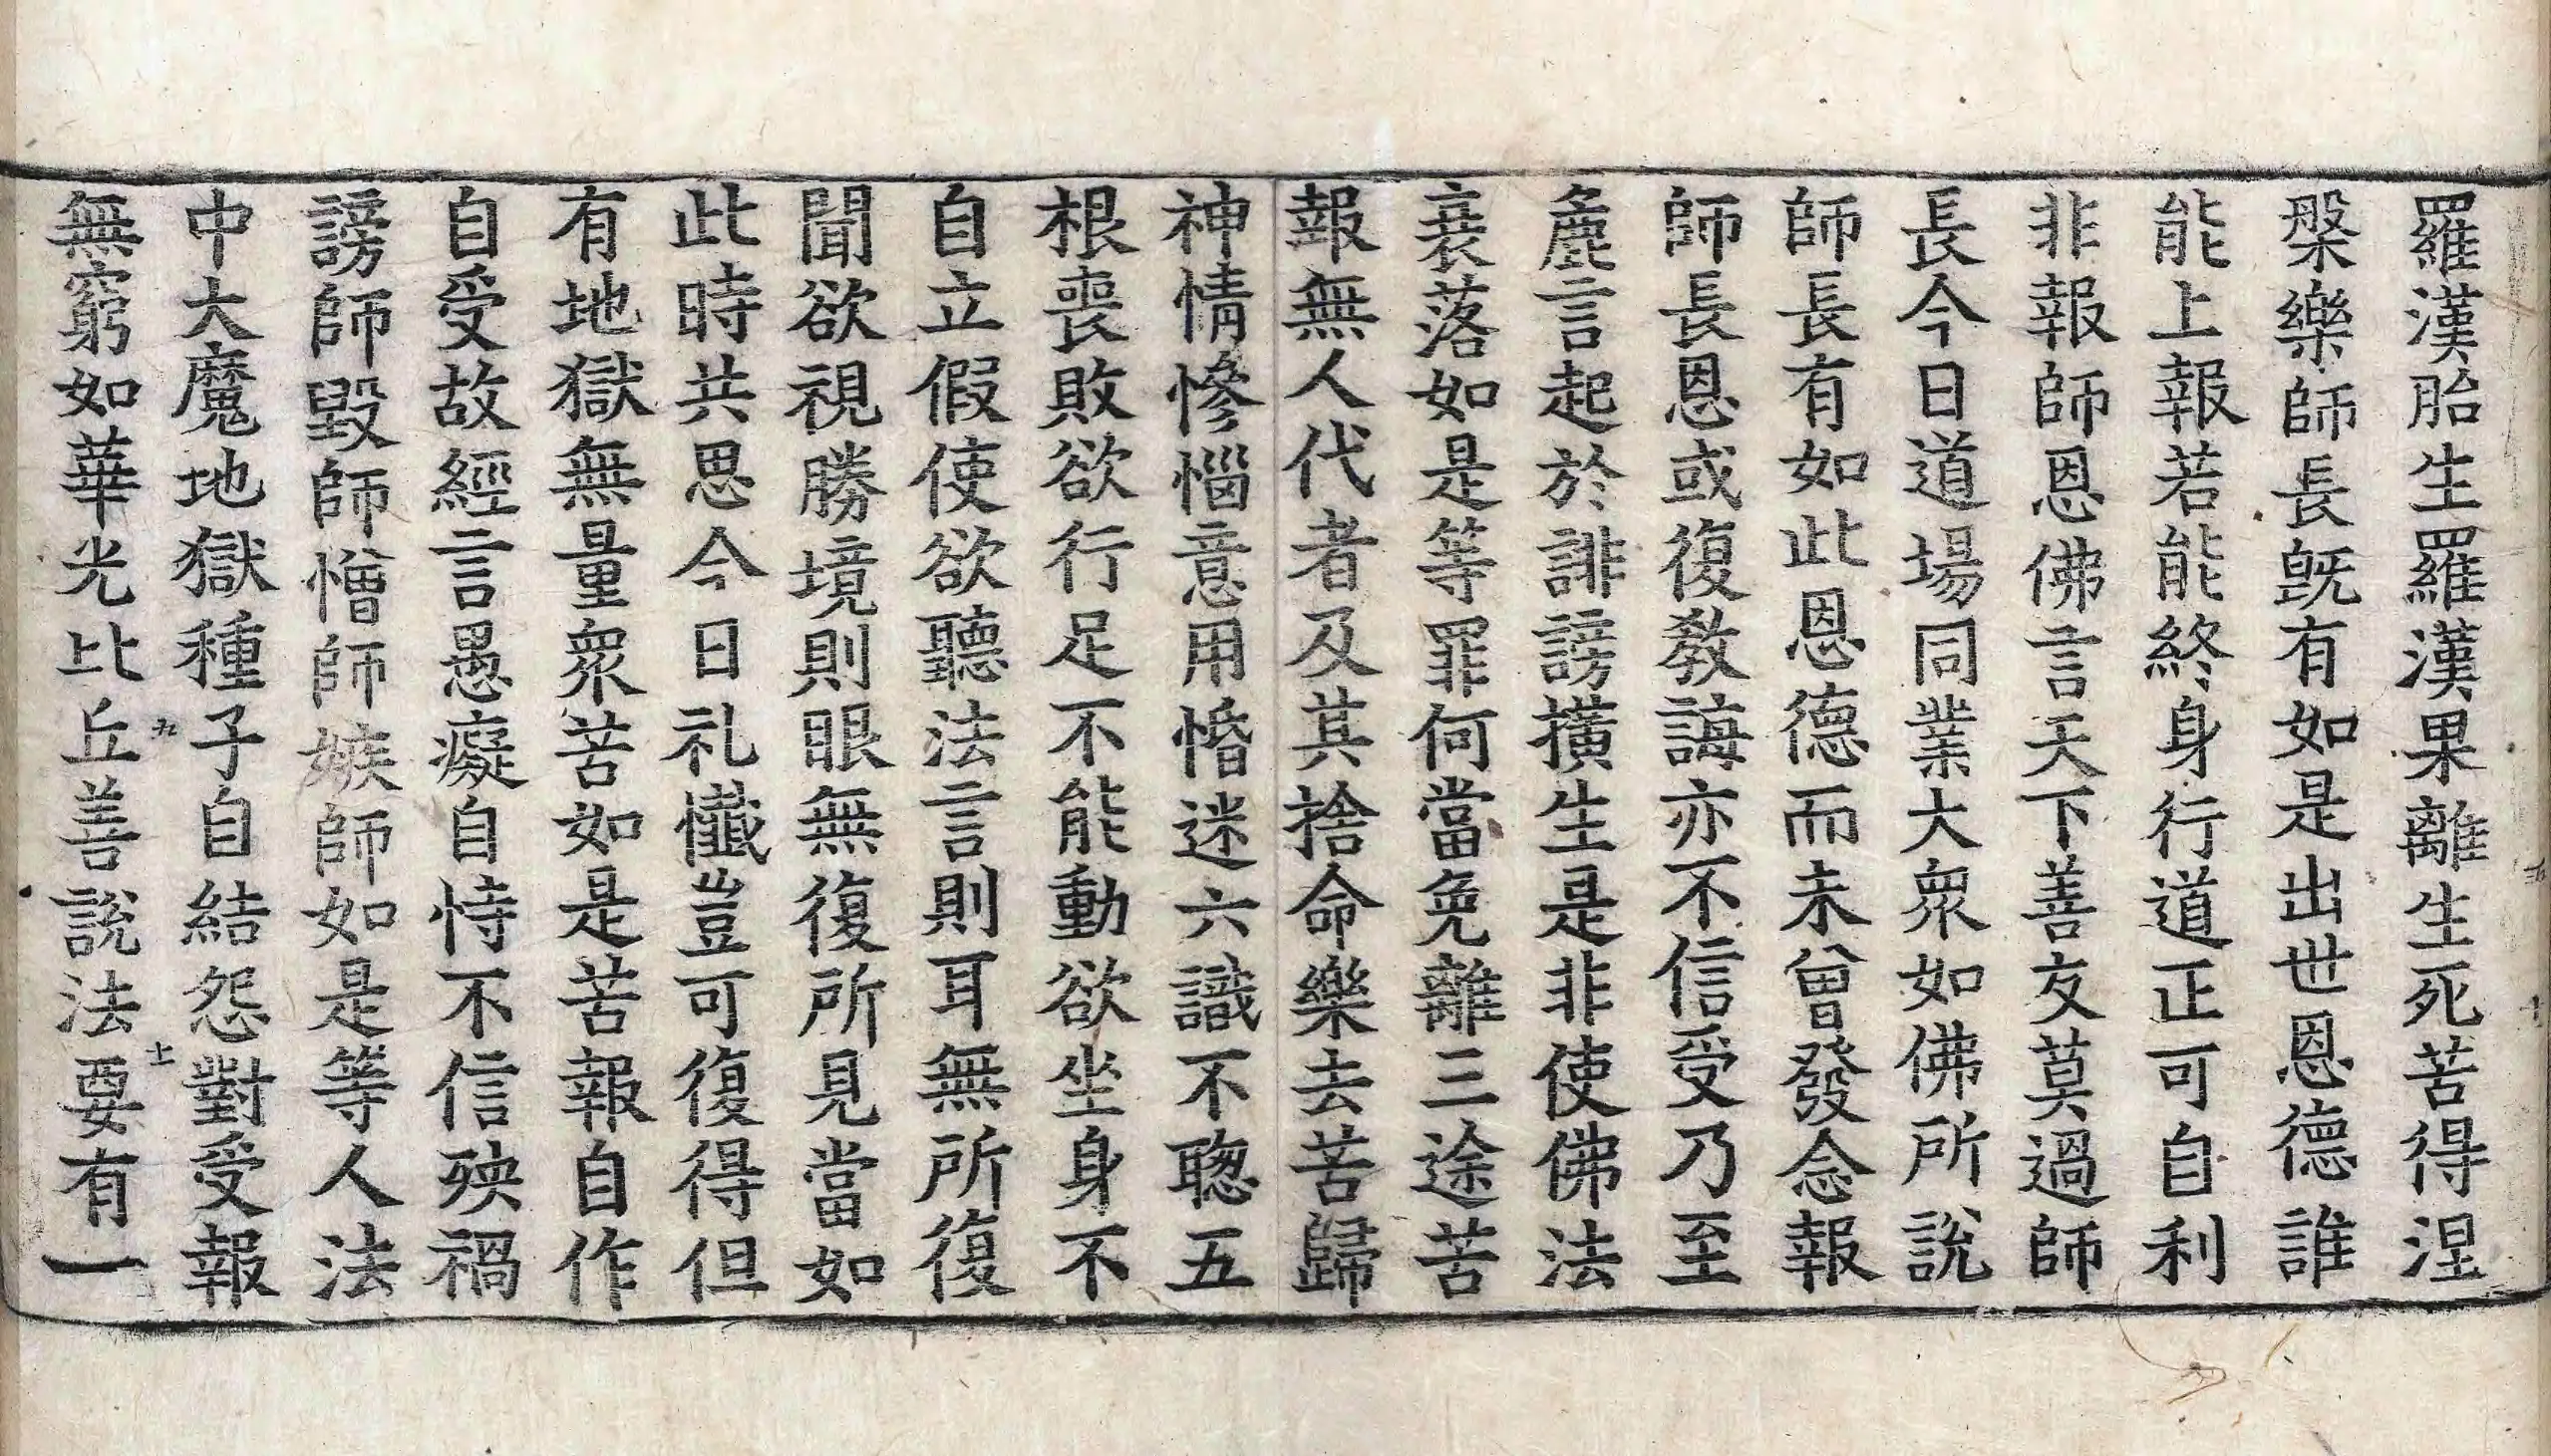 羅漢胎生羅漢果離生死苦得涅
槃樂師長既有如是出世恩德誰
能上報若能終身行道正可自利
非報師恩佛言天下善友莫過師
長今日道場同業大衆如佛所說
師長有如此恩德而未曾發念報
師長恩或復教誨亦不信受乃至
麁言起於誹謗撗生是非使佛法
衰落如是等罪何當免離三途苦
報無人代者及其捨命樂去苦歸
神情慘惱意用惛迷六識不聦五
根喪敗欲行足不能動欲坐身不
自立假使欲聽法言則耳無所復
聞欲視勝境則眼無復所見當如
此時共思今日礼懺豈可復得但
有地獄無量衆苦如是苦報自作
自受故經言愚癡自恃不信殃禍
謗師毀師憎師嫉師如是等人法
中大魔地獄種子自結怨對受報
無窮如華光比丘善說法要有一